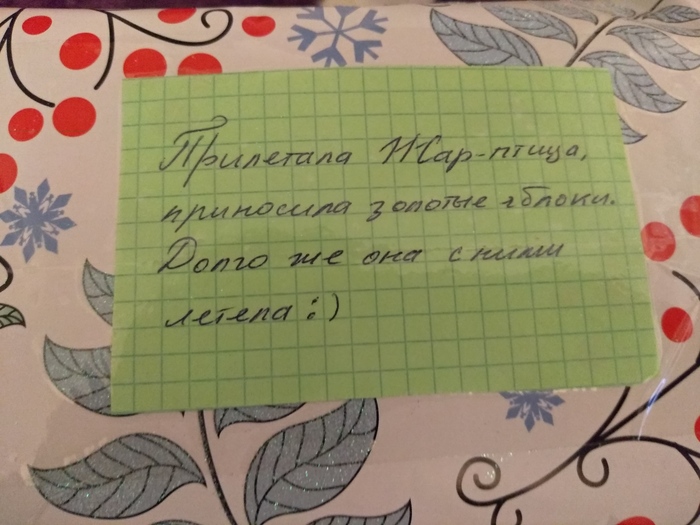 Прилетала Жар-птица,
приносила золотые яблоки.
Долго же она с ними
летела :)